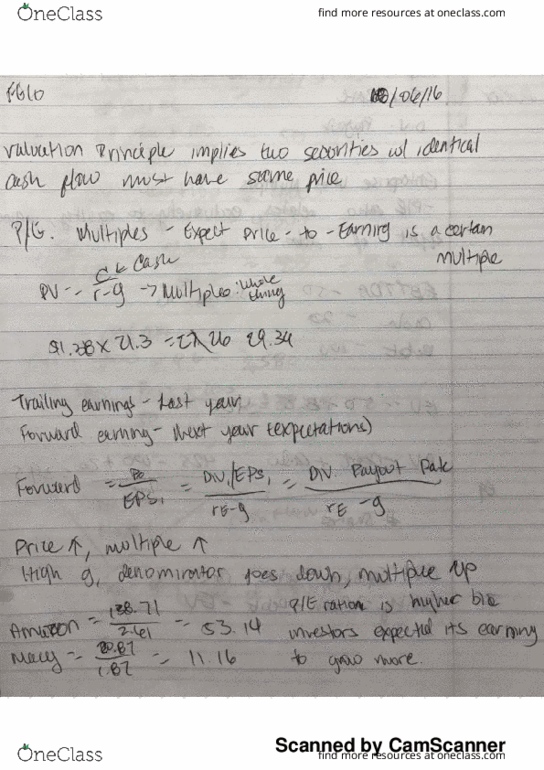 OneClass
find more resources at oneclass.com
10/06/16
Valuation Principle implies two securities w/ identical
cash flow must have same price
P/G. Multiples - Expect Price - to - Earning is a certain
multiple
C ← Cash
PV = r-g → Multiples: whole
thing
$1.38 x 21.3 = 29.34
Trailing earnings - Last year
Forward earning - Next year (expectations)
Forward = P0 / EPS1 = DIV1/EPS1 / rE-g = DIV. Payout Rate / rE - g
Price ↑, multiple ↑
High g, denominator goes down, multiple up
Amazon = / 2.61 = 53.14
P/E ration is higher b/c
investors expected its earning
Macy = 20.87 / 1.87 = 11.16
to grow more.
Scanned by CamScanner
OneClass
find more resources at oneclass.com